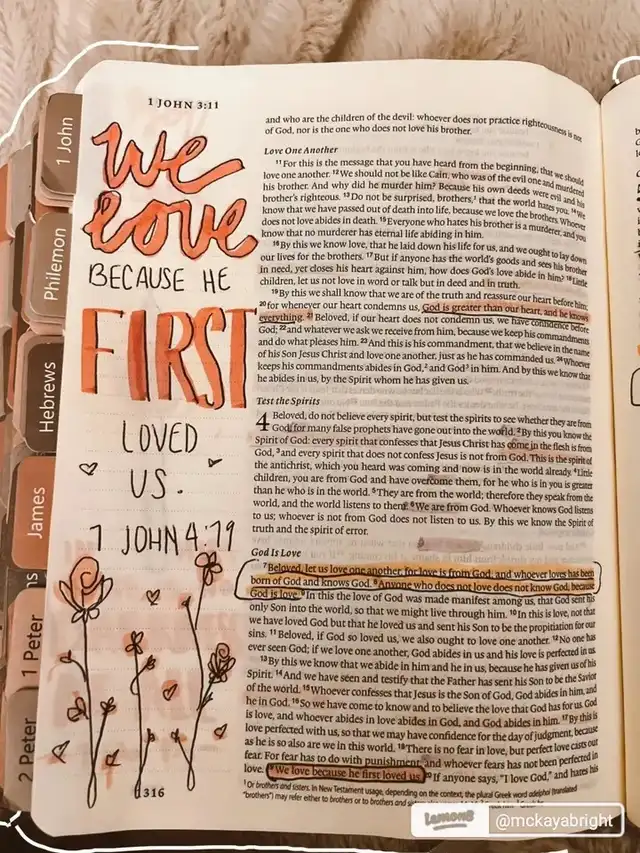 1 JOHN 3:11
1 John
Philemon
Hebrews
James
1 Peter
2 Peter
We
love
BECAUSE HE
FIRST
LOVED
US.
1 JOHN 4:19
and who are the children of the devil: whoever does not practice righteousness is not
of God, nor is the one who does not love his brother.
Love One Another
11 For this is the message that you have heard from the beginning, that we should
love one another. 12 We should not be like Cain, who was of the evil one and murdered
his brother. And why did he murder him? Because his own deeds were evil and his
brother's righteous. 13 Do not be surprised, brothers,1 that the world hates you. 14 We
know that we have passed out of death into life, because we love the brothers. Whoever
does not love abides in death. 15 Everyone who hates his brother is a murderer, and you
know that no murderer has eternal life abiding in him.
16 By this we know love, that he laid down his life for us, and we ought to lay down
our lives for the brothers. 17 But if anyone has the world's goods and sees his brother
in need, yet closes his heart against him, how does God's love abide in him? 18 Little
children, let us not love in word or talk but in deed and in truth.
19 By this we shall know that we are of the truth and reassure our heart before him;
20 for whenever our heart condemns us, God is greater than our heart, and he knows
everything. 21 Beloved, if our heart does not condemn us, we have confidence before
God; 22 and whatever we ask we receive from him, because we keep his commandments
and do what pleases him. 23 And this is his commandment, that we believe in the name
of his Son Jesus Christ and love one another, just as he has commanded us. 24 Whoever
keeps his commandments abides in God,2 and God3 in him. And by this we know that
he abides in us, by the Spirit whom he has given us.
Test the Spirits
4 Beloved, do not believe every spirit, but test the spirits to see whether they are from
God, for many false prophets have gone out into the world. 2 By this you know the
Spirit of God: every spirit that confesses that Jesus Christ has come in the flesh is from
God, 3 and every spirit that does not confess Jesus is not from God. This is the spirit of
the antichrist, which you heard was coming and now is in the world already. 4 Little
children, you are from God and have overcome them, for he who is in you is greater
than he who is in the world. 5 They are from the world; therefore they speak from the
world, and the world listens to them. 6 We are from God. Whoever knows God listens
to us; whoever is not from God does not listen to us. By this we know the Spirit of
truth and the spirit of error.
God Is Love
7 Beloved, let us love one another, for love is from God, and whoever loves has been
born of God and knows God. 8 Anyone who does not love does not know God, because
God is love. 9 In this the love of God was made manifest among us, that God sent his
only Son into the world, so that we might live through him. 10 In this is love, not that
we have loved God but that he loved us and sent his Son to be the propitiation for our
sins. 11 Beloved, if God so loved us, we also ought to love one another. 12 No one has
ever seen God; if we love one another, God abides in us and his love is perfected in us.
13 By this we know that we abide in him and he in us, because he has given us of his
Spirit. 14 And we have seen and testify that the Father has sent his Son to be the Savior
of the world. 15 Whoever confesses that Jesus is the Son of God, God abides in him, and
he in God. 16 So we have come to know and to believe the love that God has for us. God
is love, and whoever abides in love abides in God, and God abides in him. 17 By this is
love perfected with us, so that we may have confidence for the day of judgment, because
as he is so also are we in this world. 18 There is no fear in love, but perfect love casts out
fear. For fear has to do with punishment, and whoever fears has not been perfected in
love. 19 We love because he first loved us. 20 If anyone says, "I love God," and hates his
1 Or brothers and sisters. In New Testament usage, depending on the context, the plural Greek word adelphoi (translated
"brothers") may refer either to brothers or to brothers and sisters
316
Lemon8 @mckayabright